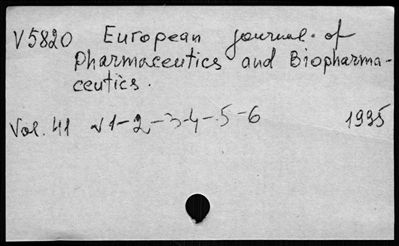 V5820 European journal of
Pharmaceutics and Biopharma-
ceutics.
Vol. 41 N 1-2-3-4-5-6 1995